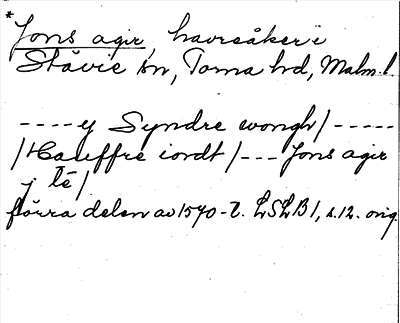 *Jons agir, havreåker i
Stävie sn, Torna hd, Malm.l.
----y Syndre wongh/-----
/Hauffre iordt/---Jons agir
j lé/
förra delen av 1570-t. LSLB1, s.12. orig.